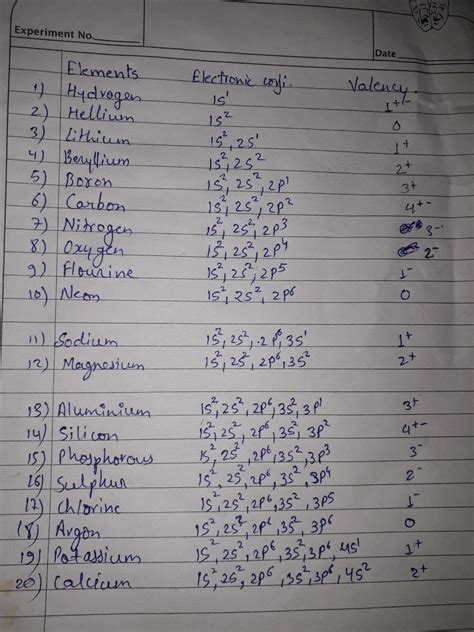 Experiment No.
Date
Elements Electronic confi. Valency.
1) Hydrogen 1s¹ 1⁺⁻
2) Hellium 1s² 0
3) Lithium 1s², 2s¹ 1⁺
4) Beryllium 1s², 2s² 2⁺
5) Boron 1s², 2s², 2p¹ 3⁺
6) Carbon 1s², 2s², 2p² 4⁺⁻
7) Nitrogen 1s², 2s², 2p³ 3⁻
8) Oxygen 1s², 2s², 2p⁴ 2⁻
9) Flourine 1s², 2s², 2p⁵ 1⁻
10) Neon 1s², 2s², 2p⁶ 0
11) Sodium 1s², 2s², 2p⁶, 3s¹ 1⁺
12) Magnesium 1s², 2s², 2p⁶, 3s² 2⁺
13) Aluminium 1s², 2s², 2p⁶, 3s², 3p¹ 3⁺
14) Silicon 1s², 2s², 2p⁶, 3s², 3p² 4⁺⁻
15) Phosphorous 1s², 2s², 2p⁶, 3s², 3p³ 3⁻
16) Sulphur 1s², 2s², 2p⁶, 3s², 3p⁴ 2⁻
17) Chlorine 1s², 2s², 2p⁶, 3s², 3p5 1⁻
18) Argon 1s², 2s², 2p⁶, 3s², 3p⁶ 0
19) Potassium 1s², 2s², 2p⁶, 3s², 3p⁶, 4s¹ 1⁺
20) Calcium 1s², 2s², 2p⁶, 3s², 3p⁶, 4s² 2⁺